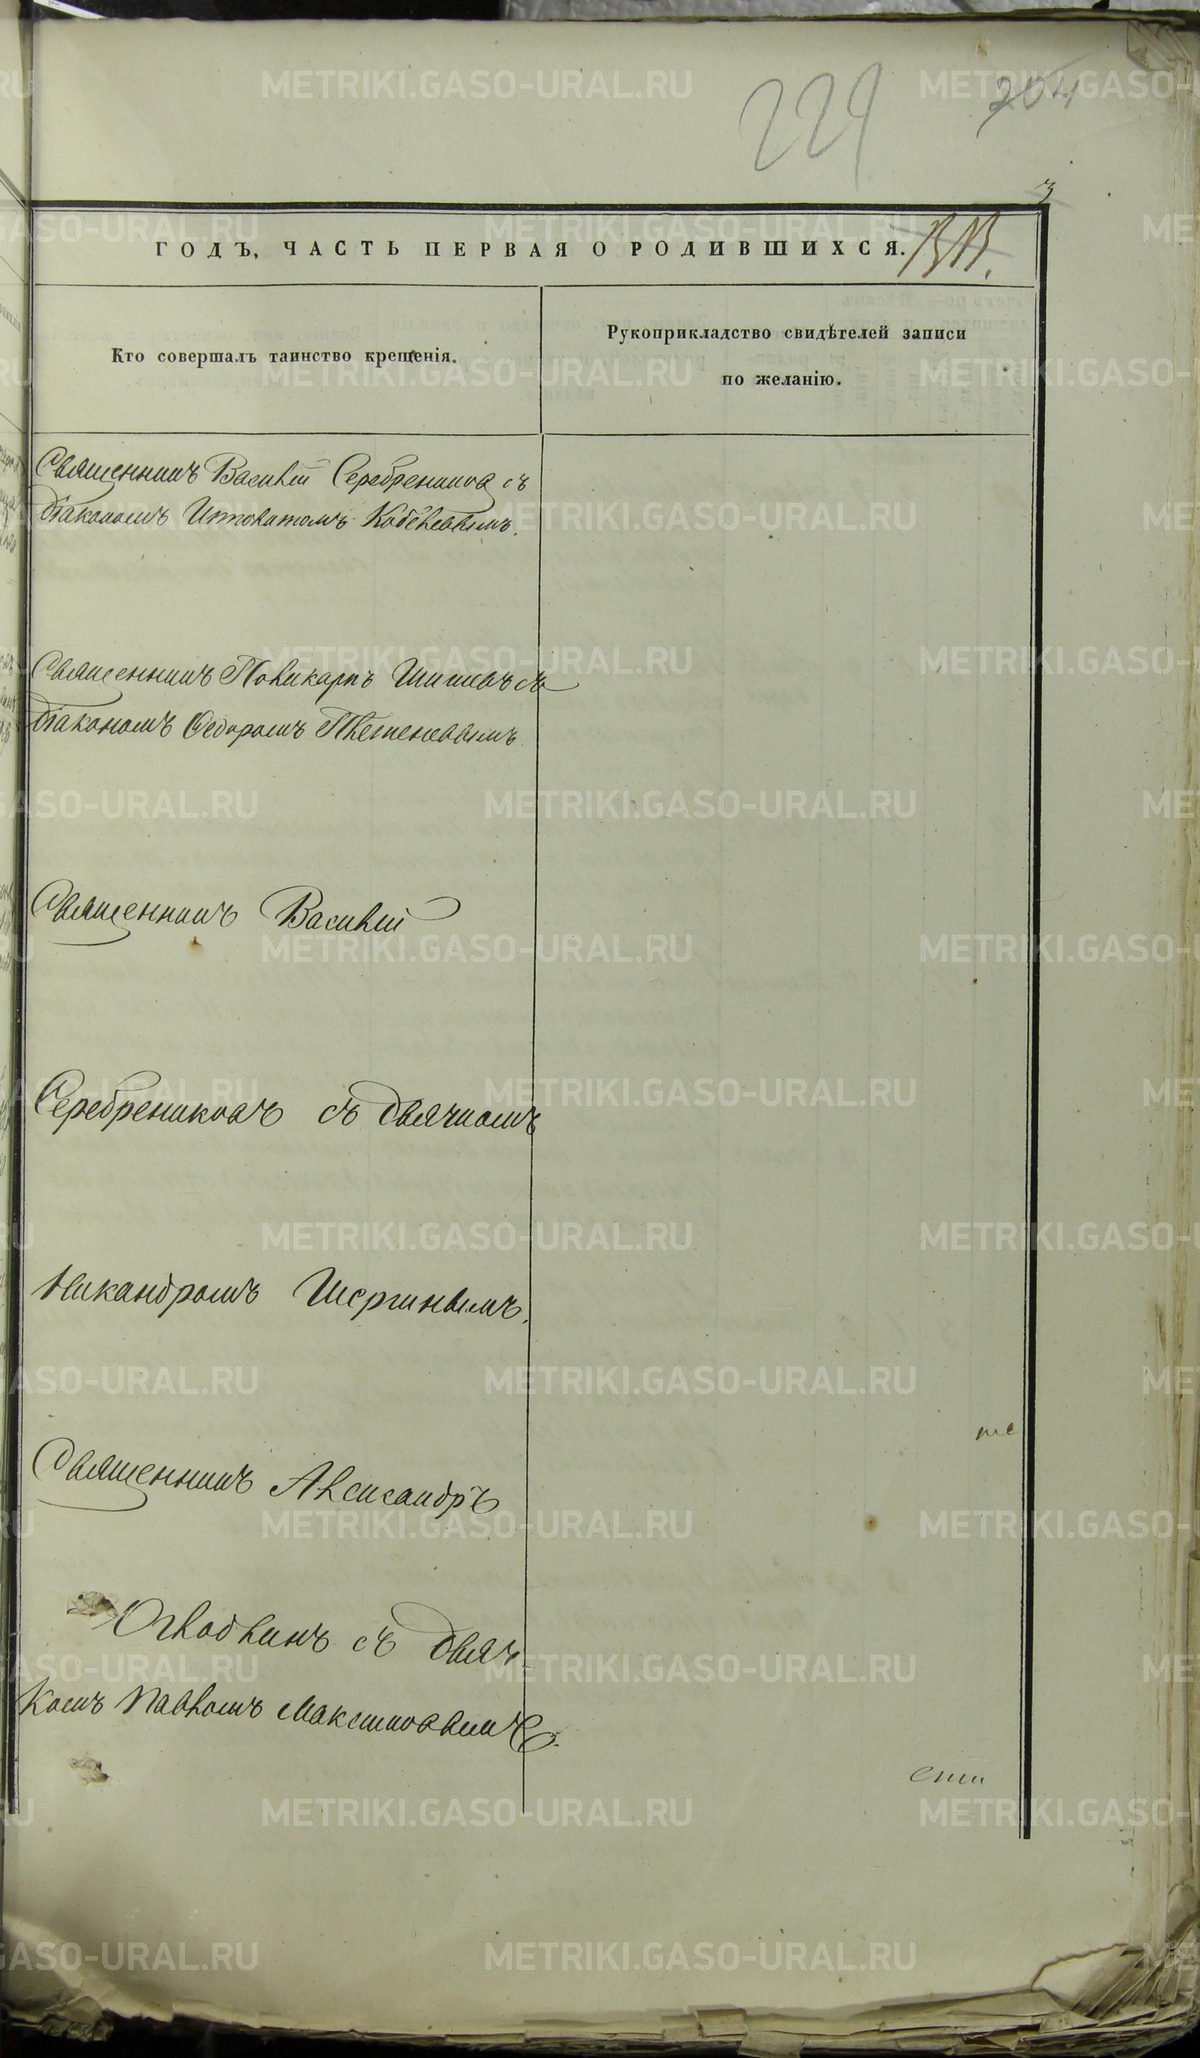 229
204
ГОДЪ, ЧАСТЬ ПЕРВАЯ О РОДИВШИХСЯ.
Кто совершалъ таинство крещенія.
Рукоприкладство свидѣтелей записи
по желанію.
Священникъ Василій Серебренников съ
діакономъ Ипполитомъ
Священникъ Поликарпъ Шишевъ съ
діакономъ Федоромъ
Священникъ Василій
Серебрениковъ съ дьячкомъ
Никандромъ Шергинымъ.
Священникъ Александръ
Оглоблинъ съ дьяч-
комъ Павломъ Максимовымъ.
METRIKI.GASO-URAL.RU